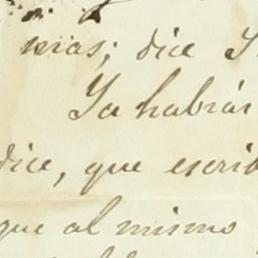 nias; dice
Ya habrás
dice, que escrib
que al mismo